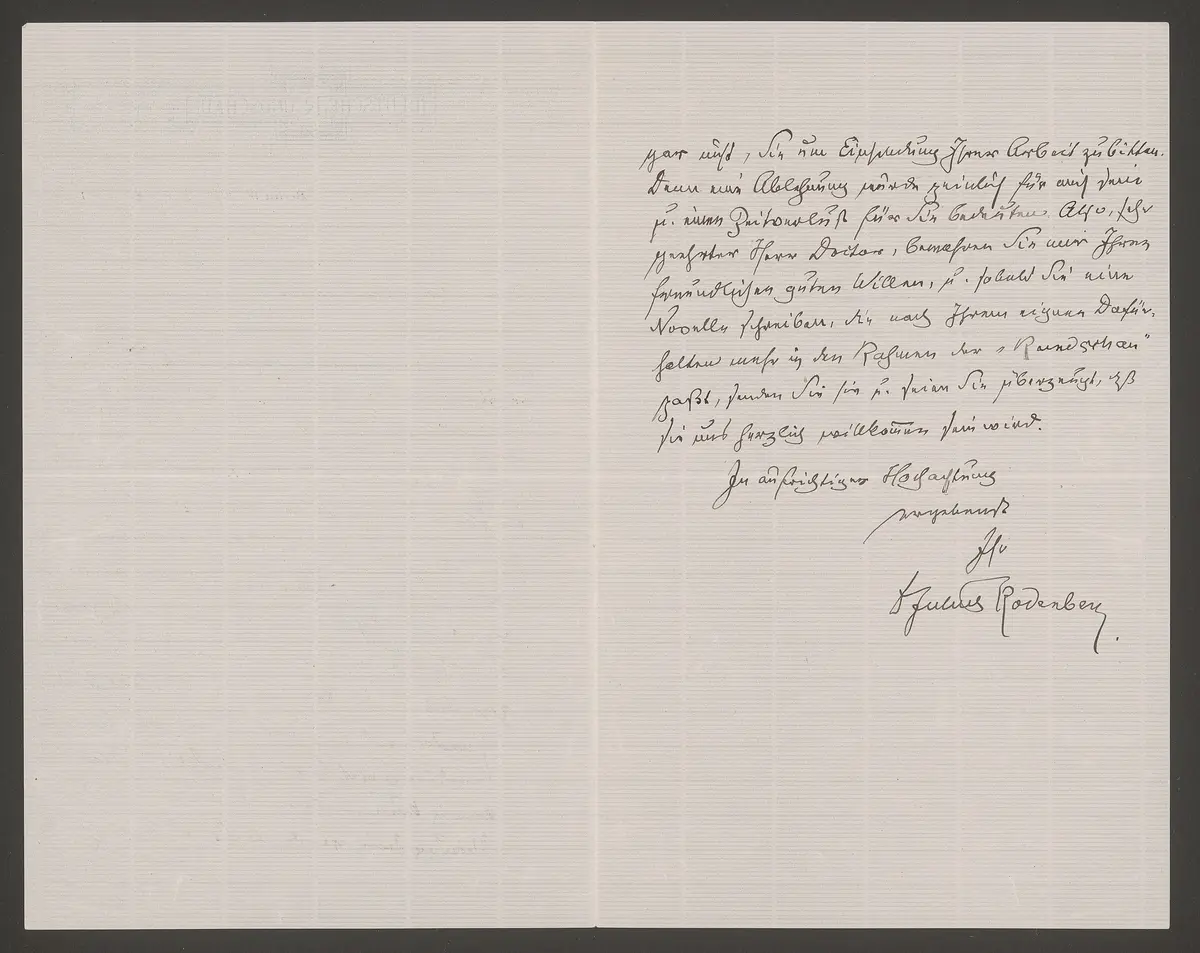 gar nicht, Sie um Einsendung Ihrer Arbeit zu bitten.
Denn eine Ablehnung würde peinlich für mich sein
u. einen Zeitverlust für Sie bedeuten. Also, sehr
geehrter Herr Doctor, bewahren Sie mir Ihren
freundlichen guten Willen, u. sobald Sie eine
Novelle schreiben, die nach Ihrem eignen Dafür-
halten mehr in den Rahmen der „Rundschau"
paßt, senden Sie sie u. seien Sie überzeugt, daß
sie uns herzlich willkom̅en sein wird.
In aufrichtiger Hochachtung
ergebenst
Ihr
Dr Julius Rodenberg.